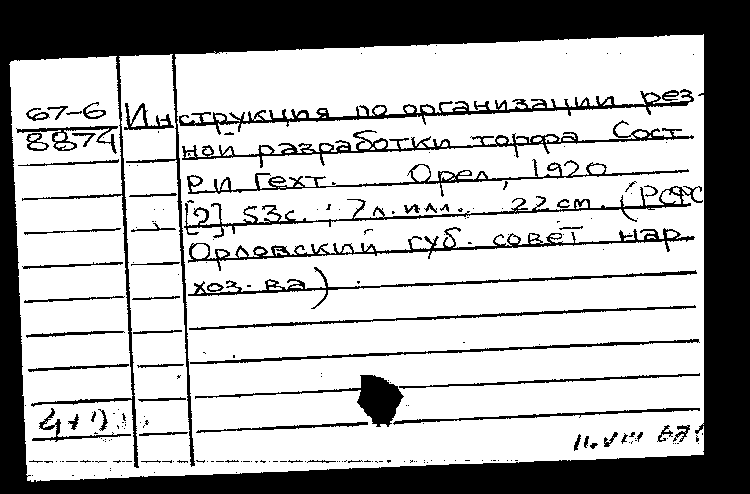 67-6 Инструкция по организации рез-
8874 ной разработки торфа Сост.
Р.И. Гехт. Орел, 1920
[2], 53с.; 7л. илл. 22 cm. (РСФС
Орловский губ. совет нар.
хоз-ва)
11.VIII